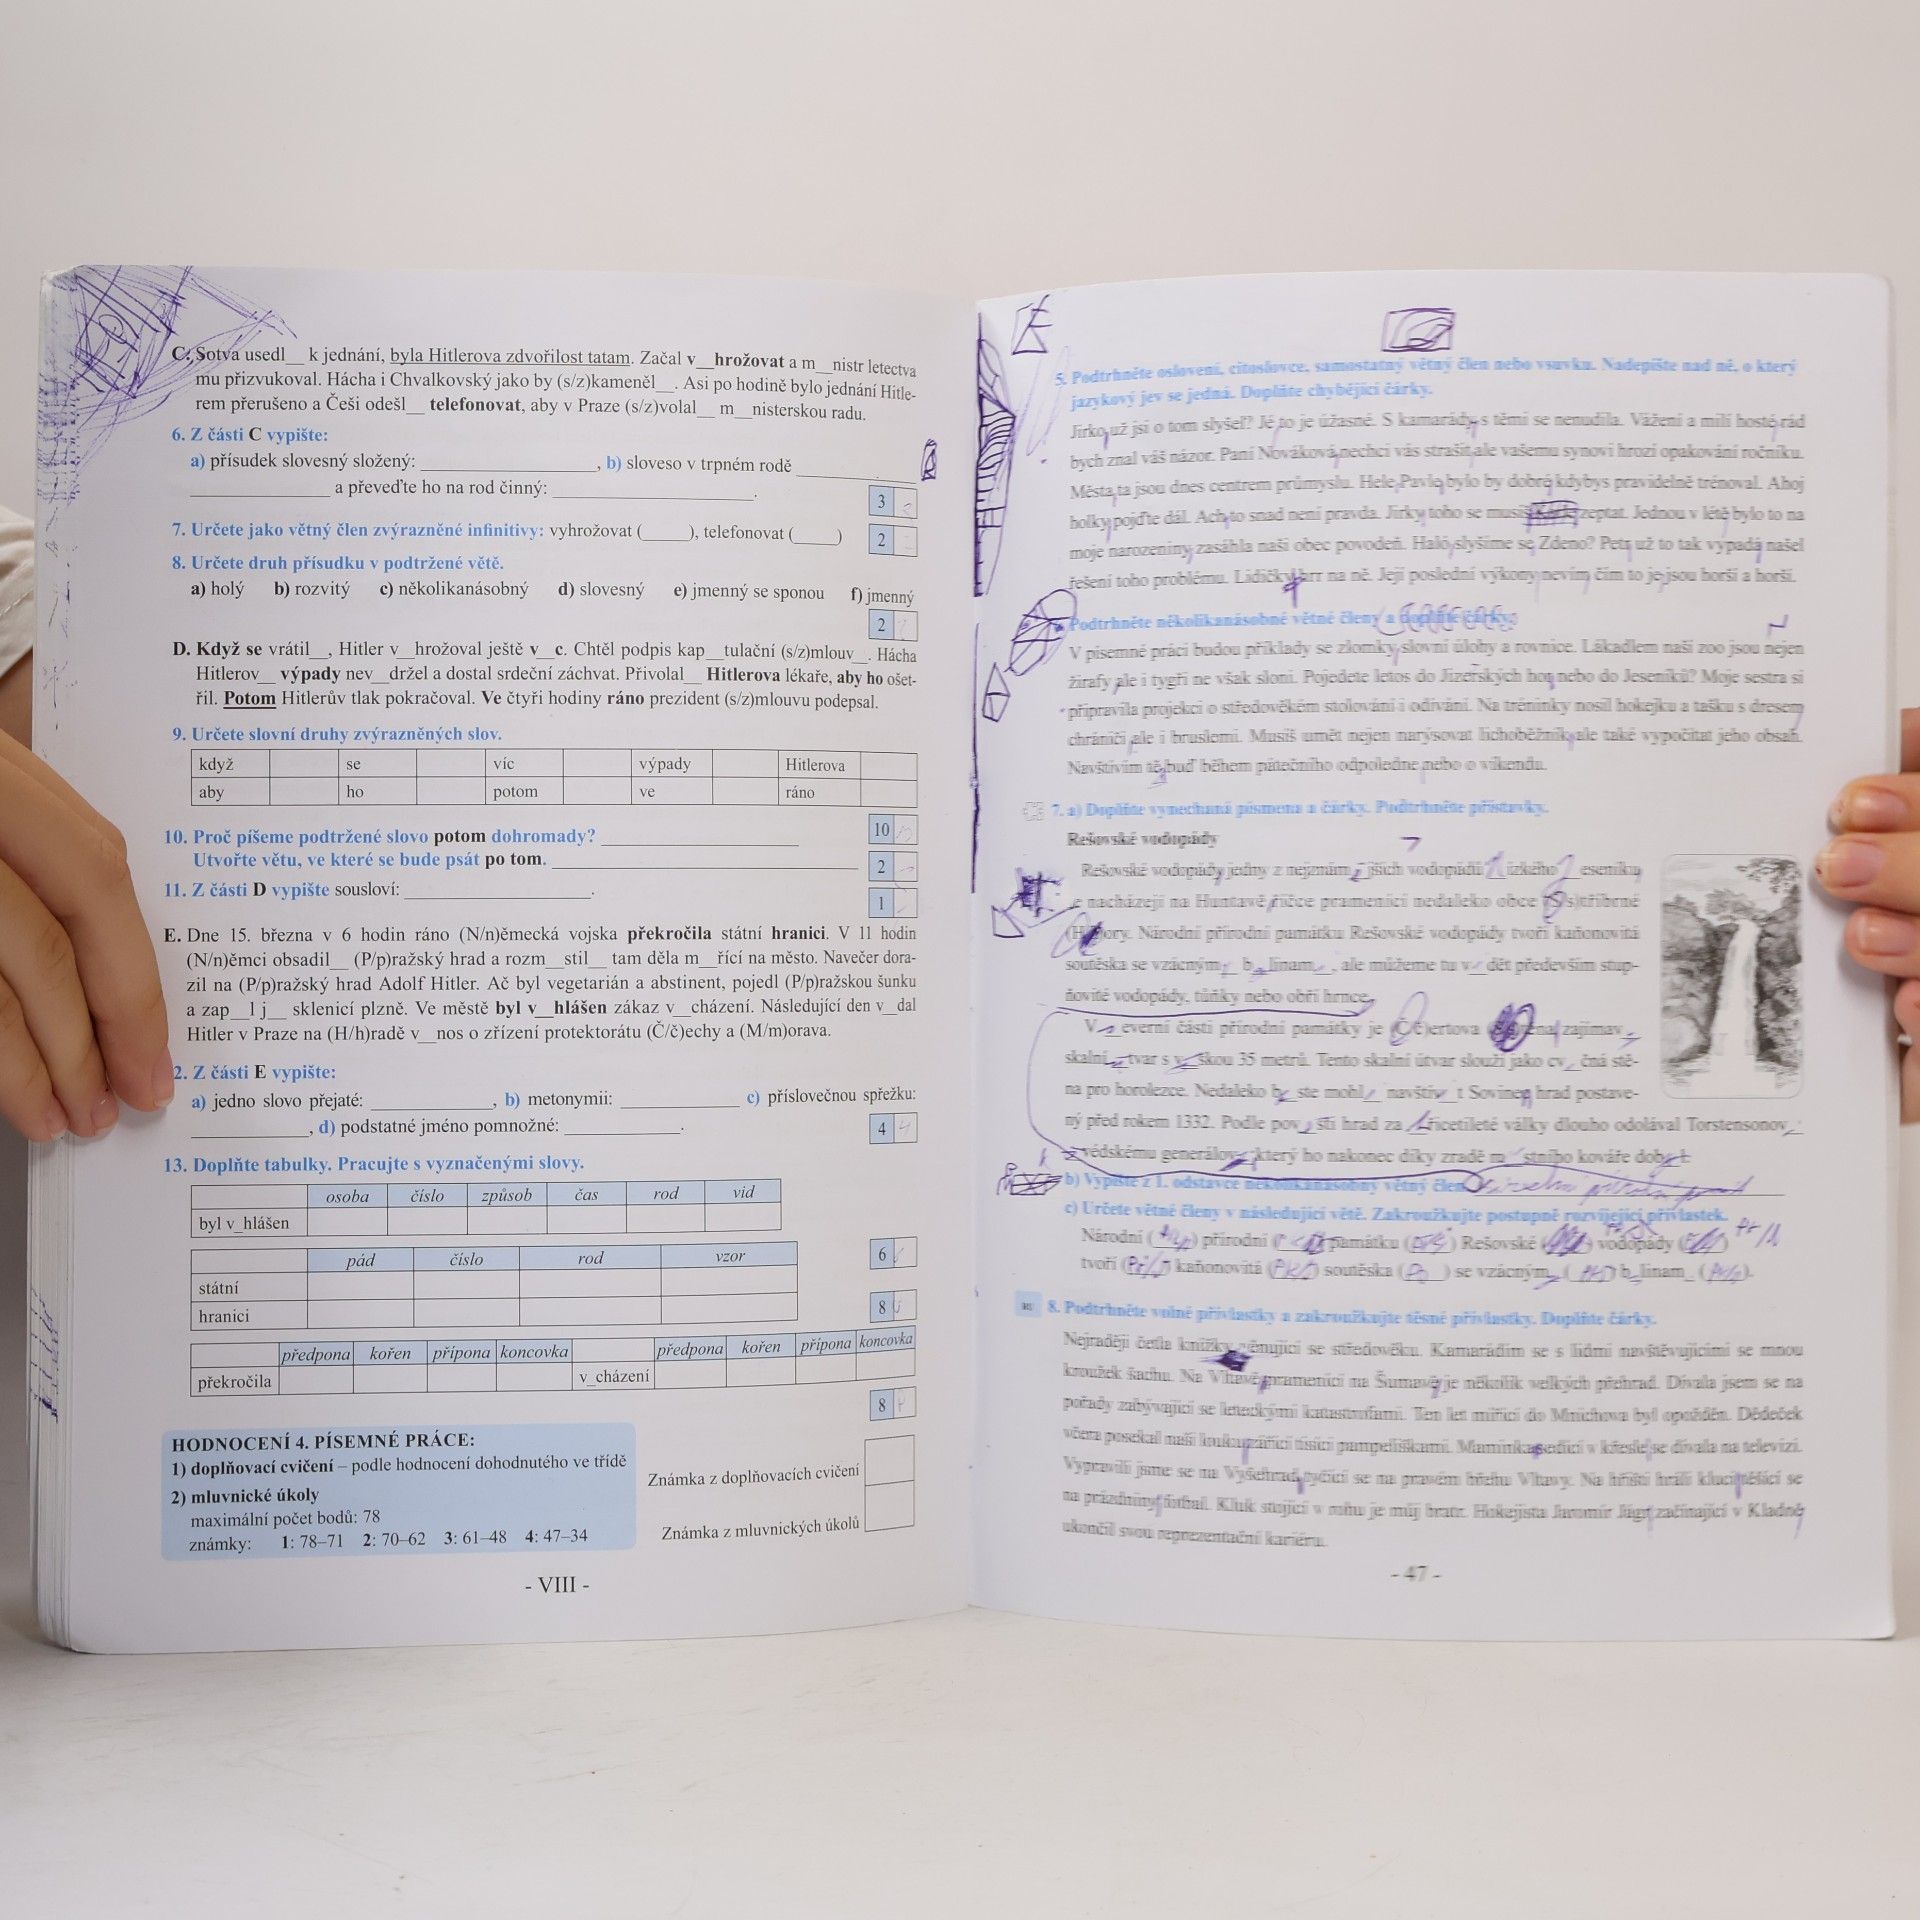 C. Sotva usedl__ k jednání, byla Hitlerova zdvořilost tatam. Začal v__hrožovat a m__nistr letectva
mu přizvukoval. Hácha i Chvalkovský jako by (s/z)kameněl__. Asi po hodině bylo jednání Hitle-
rem přerušeno a Češi odešl__ telefonovat, aby v Praze (s/z)volal__ m__nisterskou radu.
6. Z části C vypište:
a) přísudek slovesný složený: ____________, b) sloveso v trpném rodě ____________
____________ a převeďte ho na rod činný: ____________.
3
7. Určete jako větný člen zvýrazněné infinitivy: vyhrožovat (_____), telefonovat (_____)
2
8. Určete druh přísudku v podtržené větě.
a) holý b) rozvitý c) několikanásobný d) slovesný e) jmenný se sponou f) jmenný
2
D. Když se vrátil__, Hitler v__hrožoval ještě v__c. Chtěl podpis kap__tulační (s/z)mlouv__. Hácha
Hitlerov__ výpady nev__držel a dostal srdeční záchvat. Přivolal__ Hitlerova lékaře, aby ho ošet-
řil. Potom Hitlerův tlak pokračoval. Ve čtyři hodiny ráno prezident (s/z)mlouvu podepsal.
9. Určete slovní druhy zvýrazněných slov.
když se víc výpady Hitlerova
aby ho potom ve ráno
10
10. Proč píšeme podtržené slovo potom dohromady? ____________
Utvořte větu, ve které se bude psát po tom. ____________
2
11. Z části D vypište sousloví: ____________.
1
E. Dne 15. března v 6 hodin ráno (N/n)ěmecká vojska překročila státní hranici. V 11 hodin
(N/n)ěmci obsadil__ (P/p)ražský hrad a rozm__stil__ tam děla m__řící na město. Navečer dora-
zil na (P/p)ražský hrad Adolf Hitler. Ač byl vegetarián a abstinent, pojedl (P/p)ražskou šunku
a zap__l j__ sklenicí plzně. Ve městě byl v__hlášen zákaz v__cházení. Následující den v__dal
Hitler v Praze na (H/h)radě v__nos o zřízení protektorátu (Č/č)echy a (M/m)orava.
2. Z části E vypište:
a) jedno slovo přejaté: ____________, b) metonymii: ____________ c) příslovečnou spřežku:
____________, d) podstatné jméno pomnožné: ____________.
4 4
13. Doplňte tabulky. Pracujte s vyznačenými slovy.
osoba číslo způsob čas rod vid
byl v_hlášen
6
pád číslo rod vzor
státní
hranici
8
předpona kořen přípona koncovka předpona kořen přípona koncovka
překročila v_cházení
8
HODNOCENÍ 4. PÍSEMNÉ PRÁCE:
1) doplňovací cvičení – podle hodnocení dohodnutého ve třídě
2) mluvnické úkoly
maximální počet bodů: 78
známky: 1: 78–71 2: 70–62 3: 61–48 4: 47–34
Známka z doplňovacích cvičení
Známka z mluvnických úkolů
- VIII -
5. Podtrhněte oslovení, citoslovce, samostatný větný člen nebo vsuvku. Nadepište nad ně, o který
jazykový jev se jedná. Doplňte chybějící čárky.
Jirko, už jsi o tom slyšel? Jé, to je úžasné. S kamarády, s těmi se nenudila. Vážení a milí hosté, rád
bych znal váš názor. Paní Nováková, nechci vás strašit, ale vašemu synovi hrozí opakování ročníku.
Města, ta jsou dnes centrem průmyslu. Hele, Pavle, bylo by dobré, kdybys pravidelně trénoval. Ahoj
holky, pojďte dál. Ach, to snad není pravda. Jirky, toho se musíš zeptat. Jednou v létě, bylo to na
moje narozeniny, zasáhla naši obec povodeň. Haló, slyšíme se, Zdeno? Petr, už to tak vypadá, našel
řešení toho problému. Lidičky, hrr na ně. Její poslední výkony, nevím, čím to je, jsou horší a horší.
Podtrhněte několikanásobné větné členy a doplňte čárky.
V písemné práci budou příklady se zlomky, slovní úlohy a rovnice. Lákadlem naší zoo jsou nejen
žirafy, ale i tygři, ne však sloni. Pojedete letos do Jizerských hor, nebo do Jeseníků? Moje sestra si
připravila projekci o středověkém stolování i odívání. Na tréninky nosil hokejku a tašku s dresem,
chrániči, ale i bruslemi. Musíš umět nejen narýsovat lichoběžník, ale také vypočítat jeho obsah.
Navštívím tě, buď během pátečního odpoledne, nebo o víkendu.
7. a) Doplňte vynechaná písmena a čárky. Podtrhněte přístavky.
Rešovské vodopády
Rešovské vodopády, jedny z nejznám_jších vodopádů _ízkého _eseníku,
_e nacházejí na Huntavě, říčce pramenící nedaleko obce (S/s)tříbrné
(H/h)ory. Národní přírodní památku Rešovské vodopády tvoří kaňonovitá
soutěska se vzácným_ b_linam_, ale můžeme tu v_dět především stup-
ňovité vodopády, tůňky nebo obří hrnce.
V _everní části přírodní památky je (Č/č)ertova zajímav_
skalní _tvar s v_škou 35 metrů. Tento skalní útvar slouží jako cv_čná stě-
na pro horolezce. Nedaleko b_ste mohl_ navštív_t Sovinec, hrad postave-
ný před rokem 1332. Podle pov_sti hrad za _řicetileté války dlouho odolával Torstensonov_,
_védskému generálov_, který ho nakonec díky zradě m_stního kováře dob_l.
b) Vypište z 1. odstavce několikanásobný větný člen
c) Určete větné členy v následující větě. Zakroužkujte postupně rozvíjející přívlastek.
Národní ( ) přírodní ( ) památku ( ) Rešovské ( ) vodopády ( )
tvoří ( ) kaňonovitá ( ) soutěska ( ) se vzácným_ ( ) b_linam_ ( ).
8. Podtrhněte volné přívlastky a zakroužkujte těsné přívlastky. Doplňte čárky.
Nejraději četla knížky věnující se středověku. Kamarádím se s lidmi navštěvujícími se mnou
kroužek šachu. Na Vltavě, pramenící na Šumavě, je několik velkých přehrad. Dívala jsem se na
pořady zabývající se leteckými katastrofami. Ten let mířící do Mnichova byl opožděn. Dědeček
včera posekal naši louku, zářící tisíci pampeliškami. Maminka, sedící v křesle, se dívala na televizi.
Vypravili jsme se na Vyšehrad, tyčící se na pravém břehu Vltavy. Na hřišti hráli kluci, těšící se
na prázdniny, fotbal. Kluk stojící v rohu je můj bratr. Hokejista Jaromír Jágr, začínající v Kladně,
ukončil svou reprezentační kariéru.
- 47 -